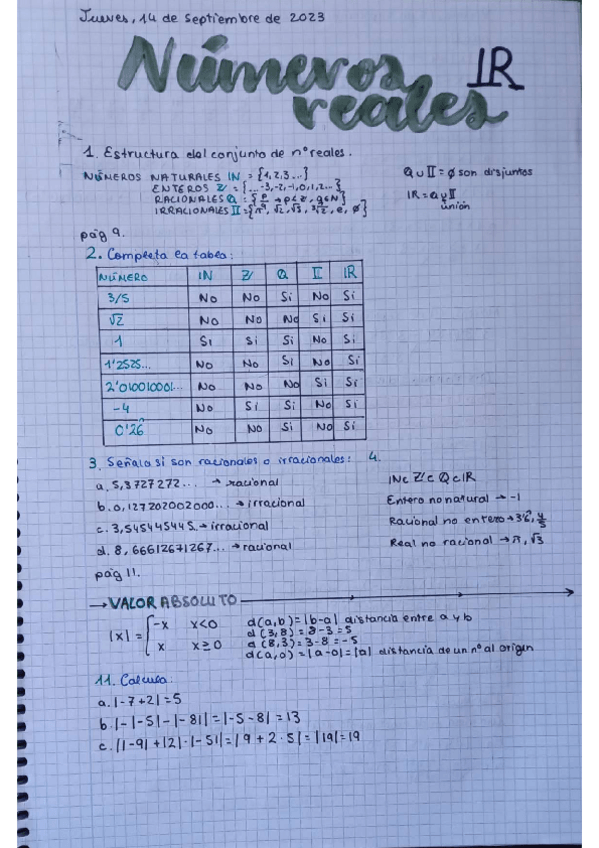 Jueves, 14 de Septiembre de 2023
Números reales IR
1. Estructura del conjunto de nº reales.
NÚMEROS NATURALES IN = {1, 2, 3 ...}
ENTEROS Z = {... -3, -2, -1, 0, 1, 2 ...}
RACIONALES Q = {p/q → p ∈ Z, q ∈ N}
IRRACIONALES II = {π, √2, √3, ∛2, e, ø}
Q ∪ II = ∅ son disjuntos
IR = Q ∪ II
unión
pág 9.
2. Completa la tabla:
NÚMERO IN Z Q II IR
3/5 No No Sí No Sí
√2 No No No Sí Sí
1 Sí Sí Sí No Sí
1'2525... No No Sí No Sí
2'010010001... No No No Sí Sí
-4 No Sí Sí No Sí
0'26 No No Sí No Sí
3. Señala si son racionales o irracionales:
a. 5,3727272... → racional
b. 0,127202002000... → irracional
c. 3,545445445. → irracional
d. 8,66612671267... → racional
4.
IN ⊂ Z ⊂ Q ⊂ IR
Entero no natural → -1
Racional no entero → 3'6, 4/5
Real no racional → π, √3
pág 11.
→ VALOR ABSOLUTO
|x| = { -x x<0
x x≥0
d(a,b) = |b-a| distancia entre a y b
d(3,8) = 8-3 = 5
d(8,3) = 3-8 = -5
d(a,0) = |a-0| = |a| distancia de un nº al origen
11. Calcula:
a. |-7+2| = 5
b. |-|-5|-|-8|| = |-5-8| = 13
c. ||-9|+|2|·|-5|| = |9+2·5| = |19| = 19